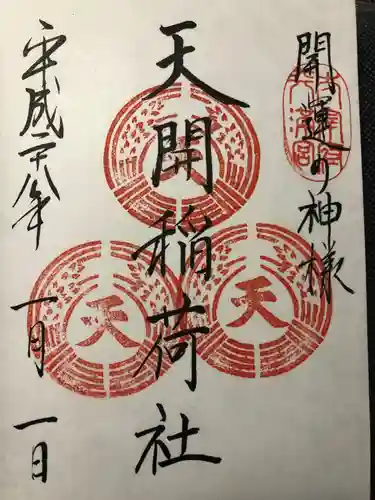 開運の神様
天開稲荷社
平成二十八年
一月一日
天
天